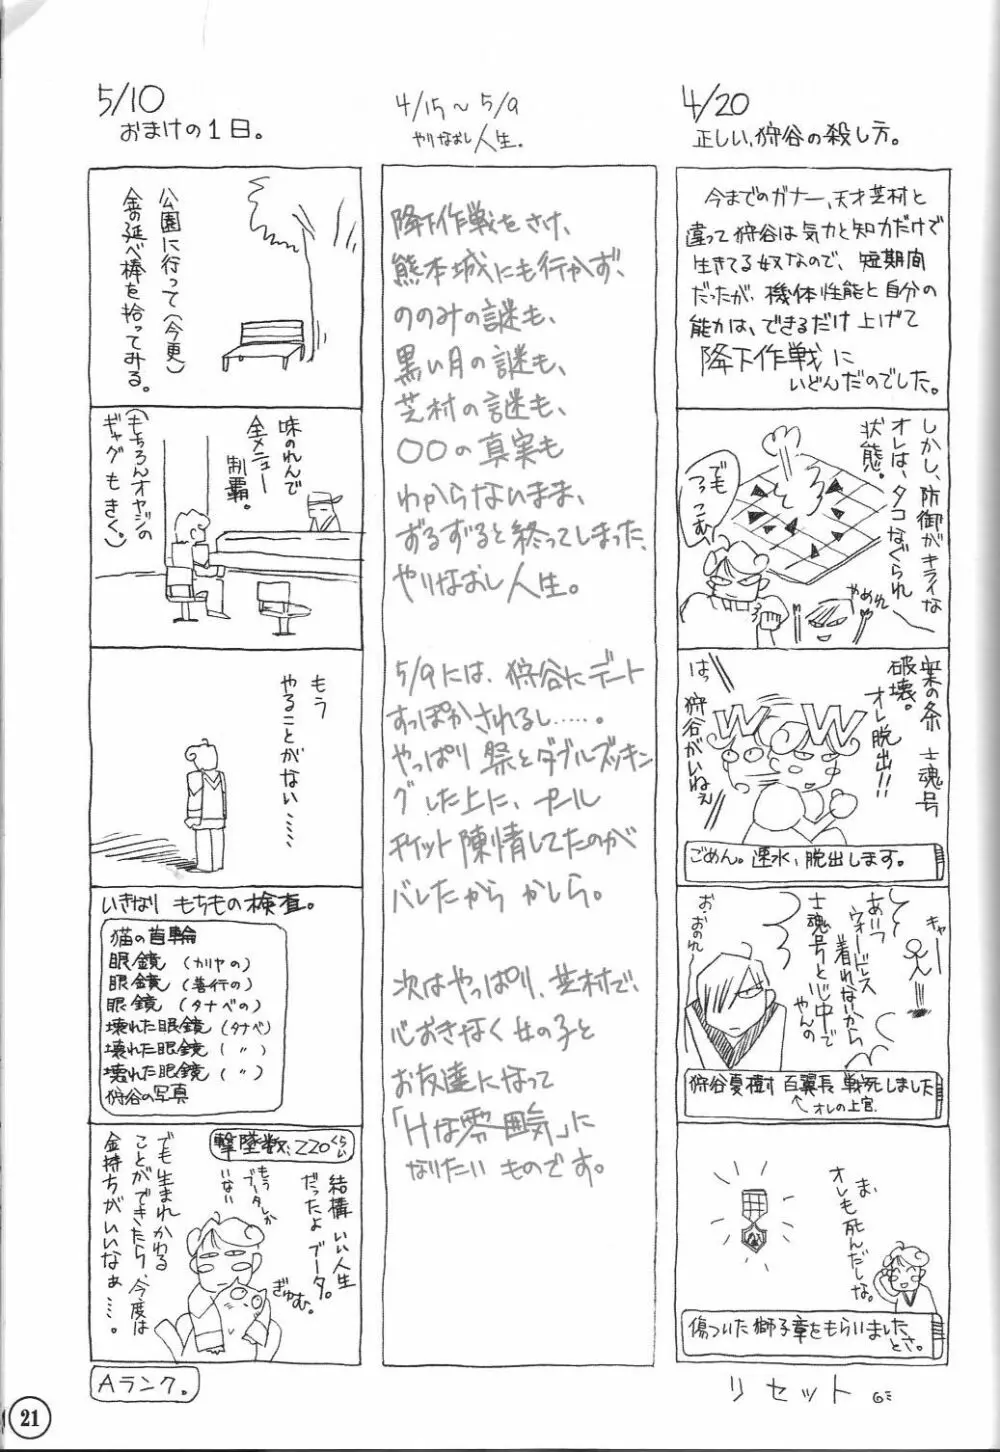 4/20
正しい、狩谷の殺し方。
今までのガナー、天才芝村と
違って狩谷は気力と知力だけで
生きてる奴なので、短期間
だったが、機体性能と自分の
能力は、できるだけ上げて
降下作戦に
いどんだのでした。
しかし、防御がキライな
オレは、タコなぐられ
状態。
でも
つっこむ
やめれ
栗の条 士魂号
破壊。
オレ脱出!!
はっ 狩谷がいねぇ
ごめん。速水、脱出します。
キャー
あいつ
ウォードレス
着れないから
士魂号とじ中で
やんの
お・おのれ
狩谷夏樹 百翼長 戦死しました
オレの上官
ま、
オレも死んだしな。
傷ついた獅子章をもらいました
とさ。
リセット
4/15〜5/9
やりなおし人生。
降下作戦をさけ、
熊本城にも行かず、
ののみの謎も、
黒い月の謎も、
芝村の謎も、
〇〇の真実も
わからないまま、
ずるずると終ってしまった、
やりなおし人生。
5/9には、狩谷にデート
すっぽかされるし……。
やっぱり祭とダブルブッキン
グした上に、プール
チケット陳情してたのが
バレたからかしら。
次はやっぱり、芝村で、
心おきなく女の子と
お友達になって
「Hな雰囲気」に
なりたいものです。
5/10
おまけの1日。
公園に行って(今更)
金の延べ棒を拾ってみる。
味のれんで
全メニュー
制覇。
(もちろんオヤジの
ギャグもきく。)
もう
やることがない……
いきなり もちもの検査。
猫の首輪
眼鏡(カリヤの)
眼鏡(善行の)
眼鏡(タナベの)
壊れた眼鏡(タナベ)
壊れた眼鏡(〃)
壊れた眼鏡(〃)
狩谷の写真
撃墜数:220くらい
結構いい人生
だったよ ブータ。
もう
ブータしか
いない
ぎゅむ。
でも生まれかわる
ことができたら、今度は
金持ちがいいなぁ……。
Aランク。
21